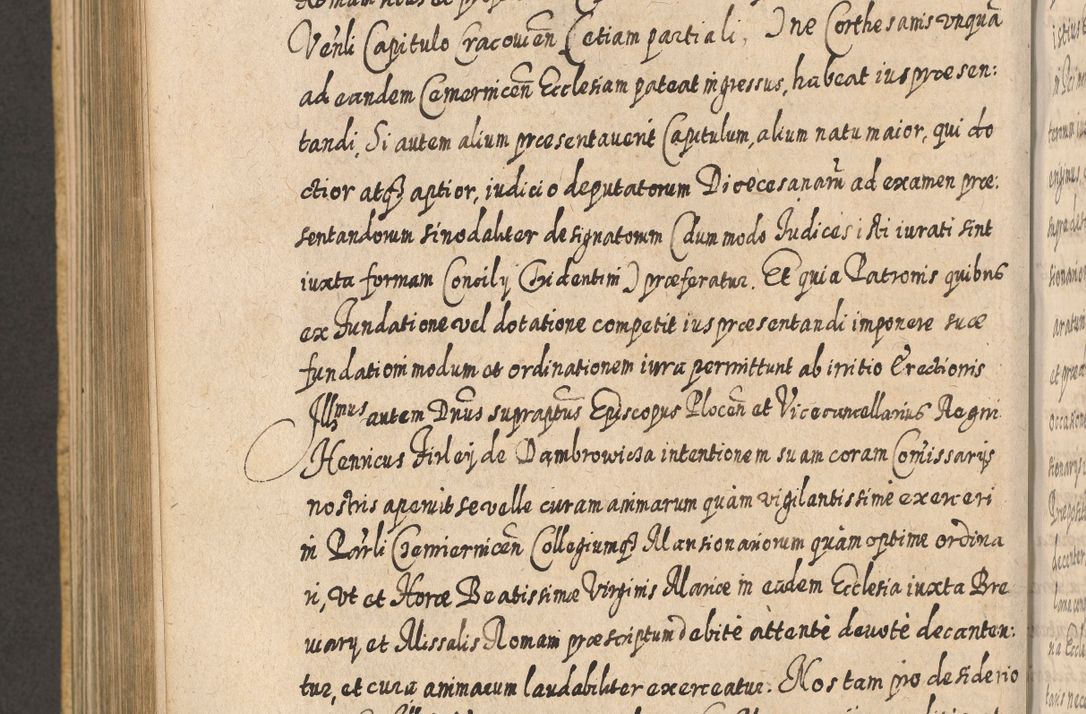 Venli Capitulo Cracovien (etiam partiali, Ine Corthesanis vnquā
ad eandem Cemernicen̄ Ecclesiam pateat ingressus, habeat ius præsen:
tandi, Si autem alium præsentauerit Capitulum, alium natu maior, qui do
ctior atqȝ aptior, iudicio deputatorum Diœcesanarū ad examen præ:
sentandorum sinodaliter designatorum (dummodo Iudices isti iurati sint
iuxta formam Concilij Tridentini) præferatur. Et quia Patronis quibus
ex Fundatione vel dotatione competit ius præsentandi imponere suæ
fundationi modum et ordinationem iura permittunt ab initio Erectionis
Illmus autem Dnūs supraptūs Episcopus Plocen̄ et Vicecancellarius Regni
Henricus Firley de Dambrowicza intentionem suam coram Comissarijs
nostris aperuit se velle curam animarum quàm vigilantissimè exerceri
in Pārli Czemiernicen̄ Collegiumqȝ Mansionariorum quàm optime ordina
ri, vt et Horæ Beatissimæ Virginis Mariæ in eadem Ecclesia iuxta Bre
uiarij et Missalis Romani præscriptum debitè attentè deuotè decanten:
tur, et cura animarum laudabiliter exerceatur. Nos tam pio desiderio